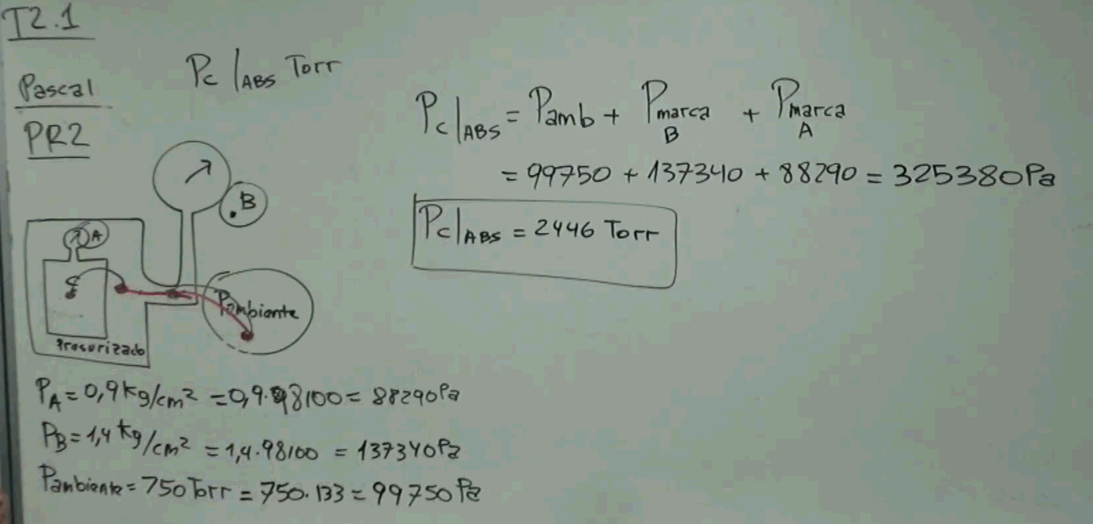 T2.1
Pascal
PR2
Pc|ABS Torr
Pc|ABS = Pamb + Pmarca B + Pmarca A
= 99750 + 137340 + 88290 = 325380Pa
Pc|ABS = 2446 Torr
A
B
Pambiante
Presurizado
PA = 0,9 kg/cm² = 0,9·98100 = 88290Pa
PB = 1,4 kg/cm² = 1,4·98100 = 137340Pa
Pambiante = 750 Torr = 750·133 = 99750 Pa